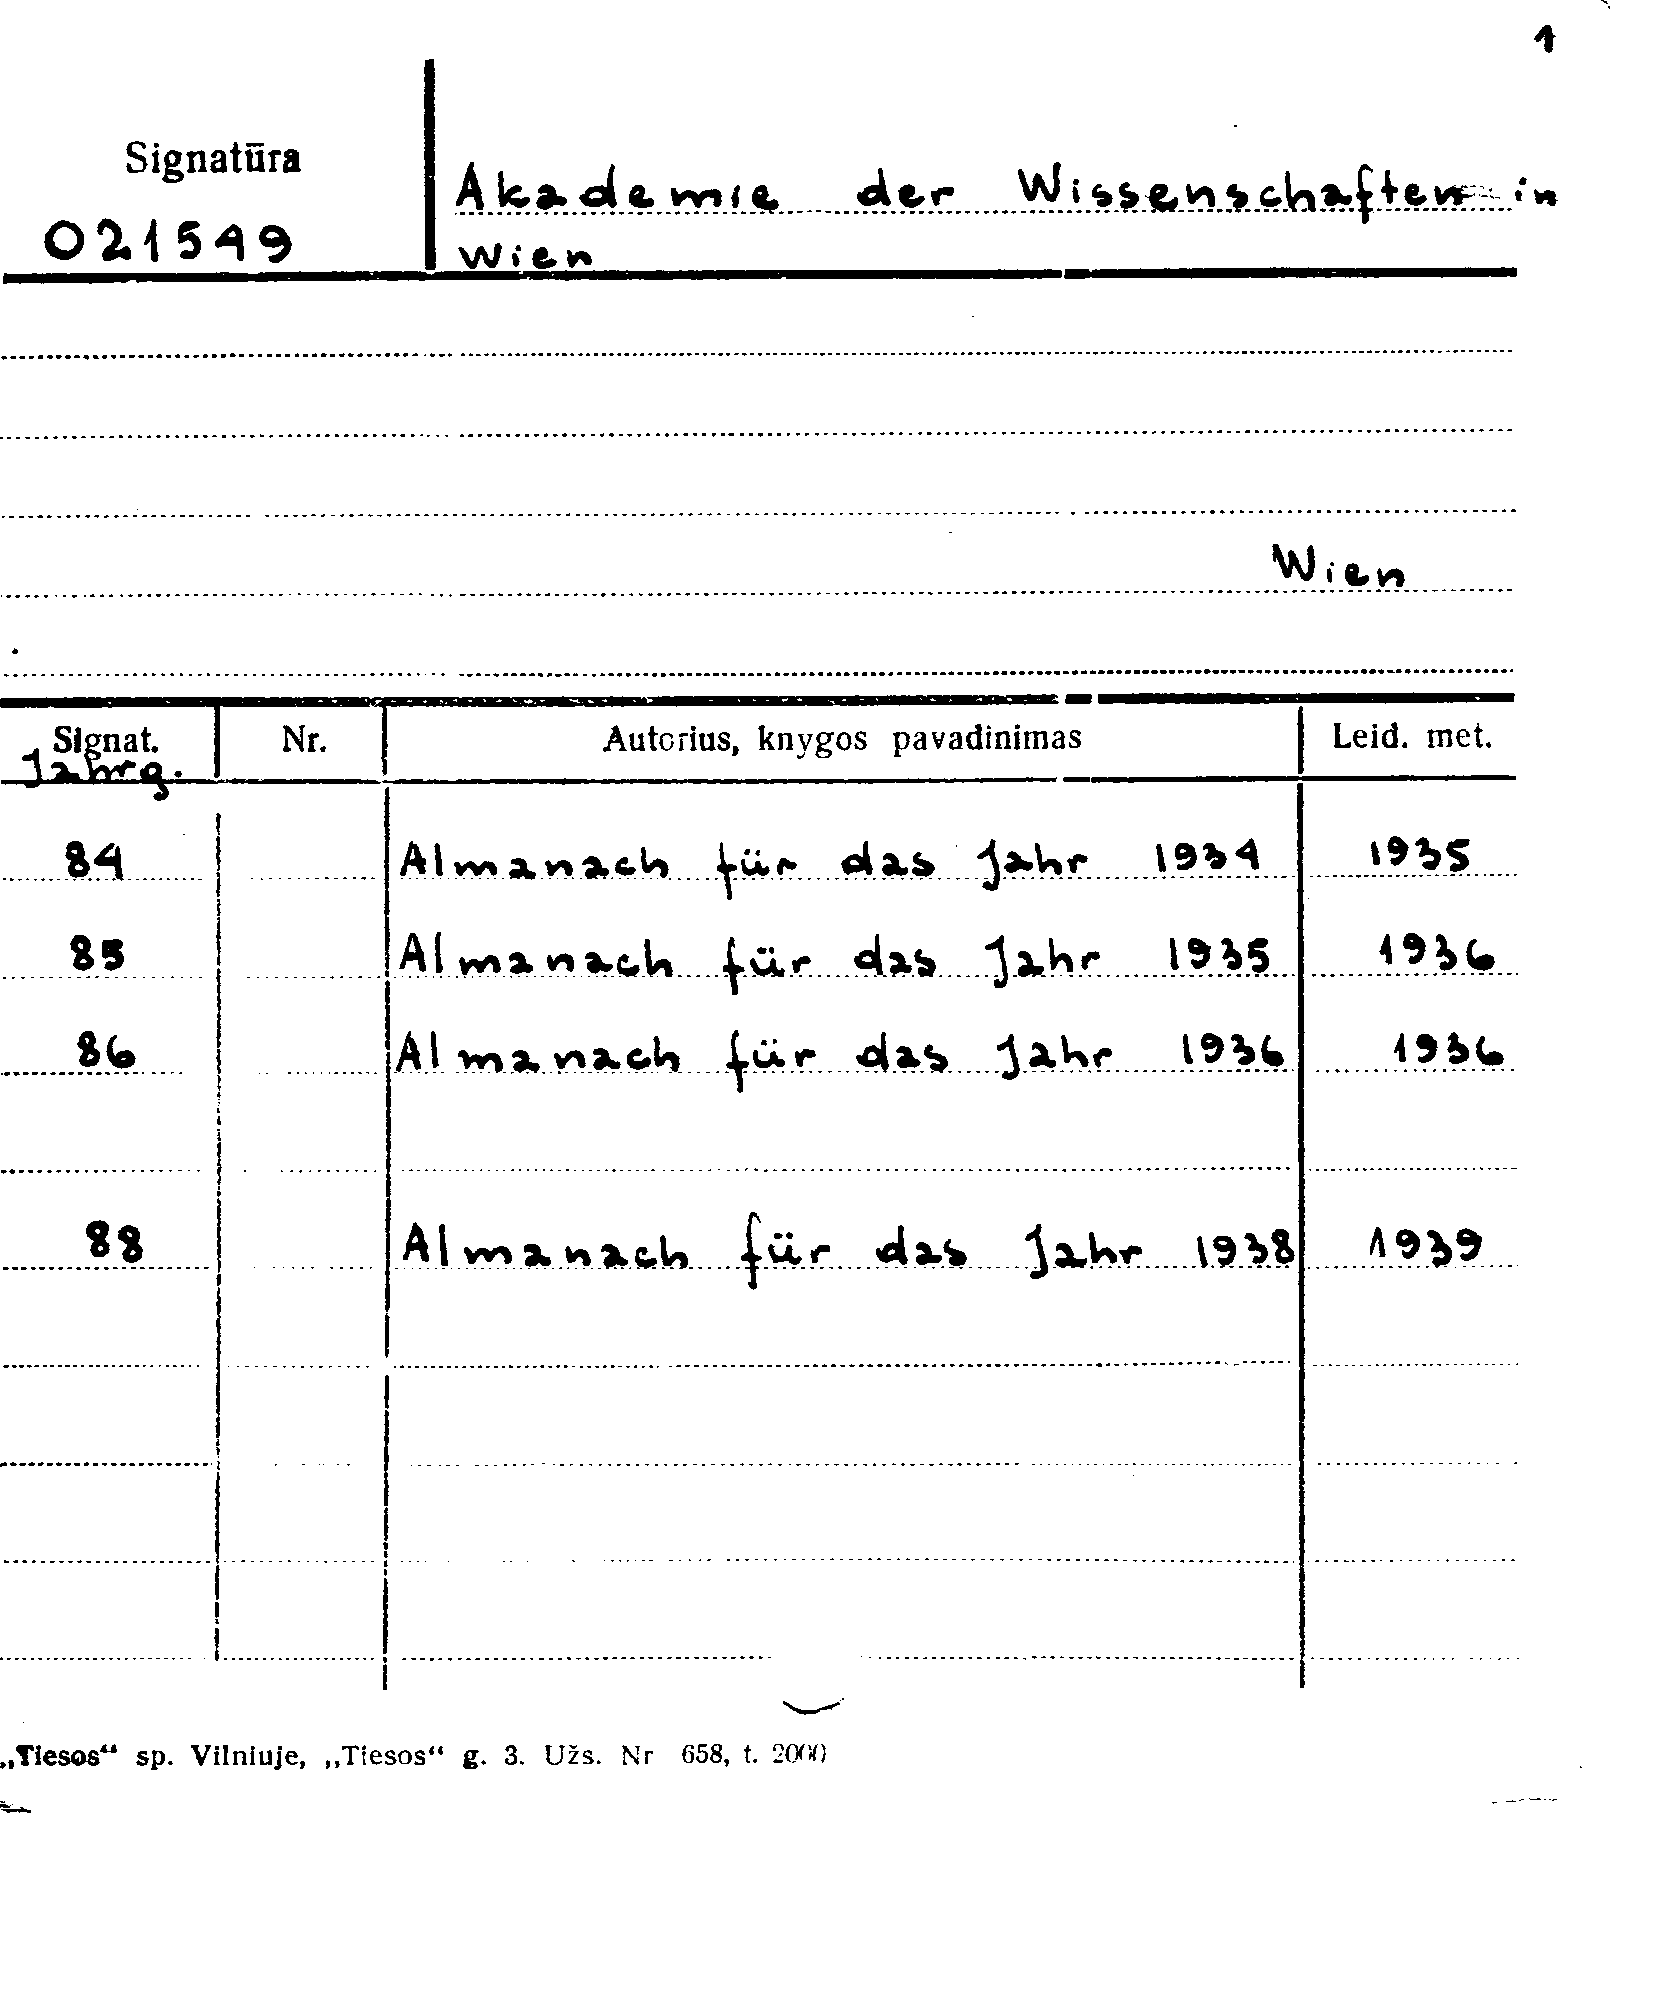 1
Signatūra
021549
Akademie der Wissenschaften in
Wien
Wien
Signat. Nr. Autorius, knygos pavadinimas Leid. met.
Jahrg.
84 Almanach für das Jahr 1934 1935
85 Almanach für das Jahr 1935 1936
86 Almanach für das Jahr 1936 1936
88 Almanach für das Jahr 1938 1939
„Tiesos“ sp. Vilniuje, „Tiesos“ g. 3. Užs. Nr 658, t. 2000